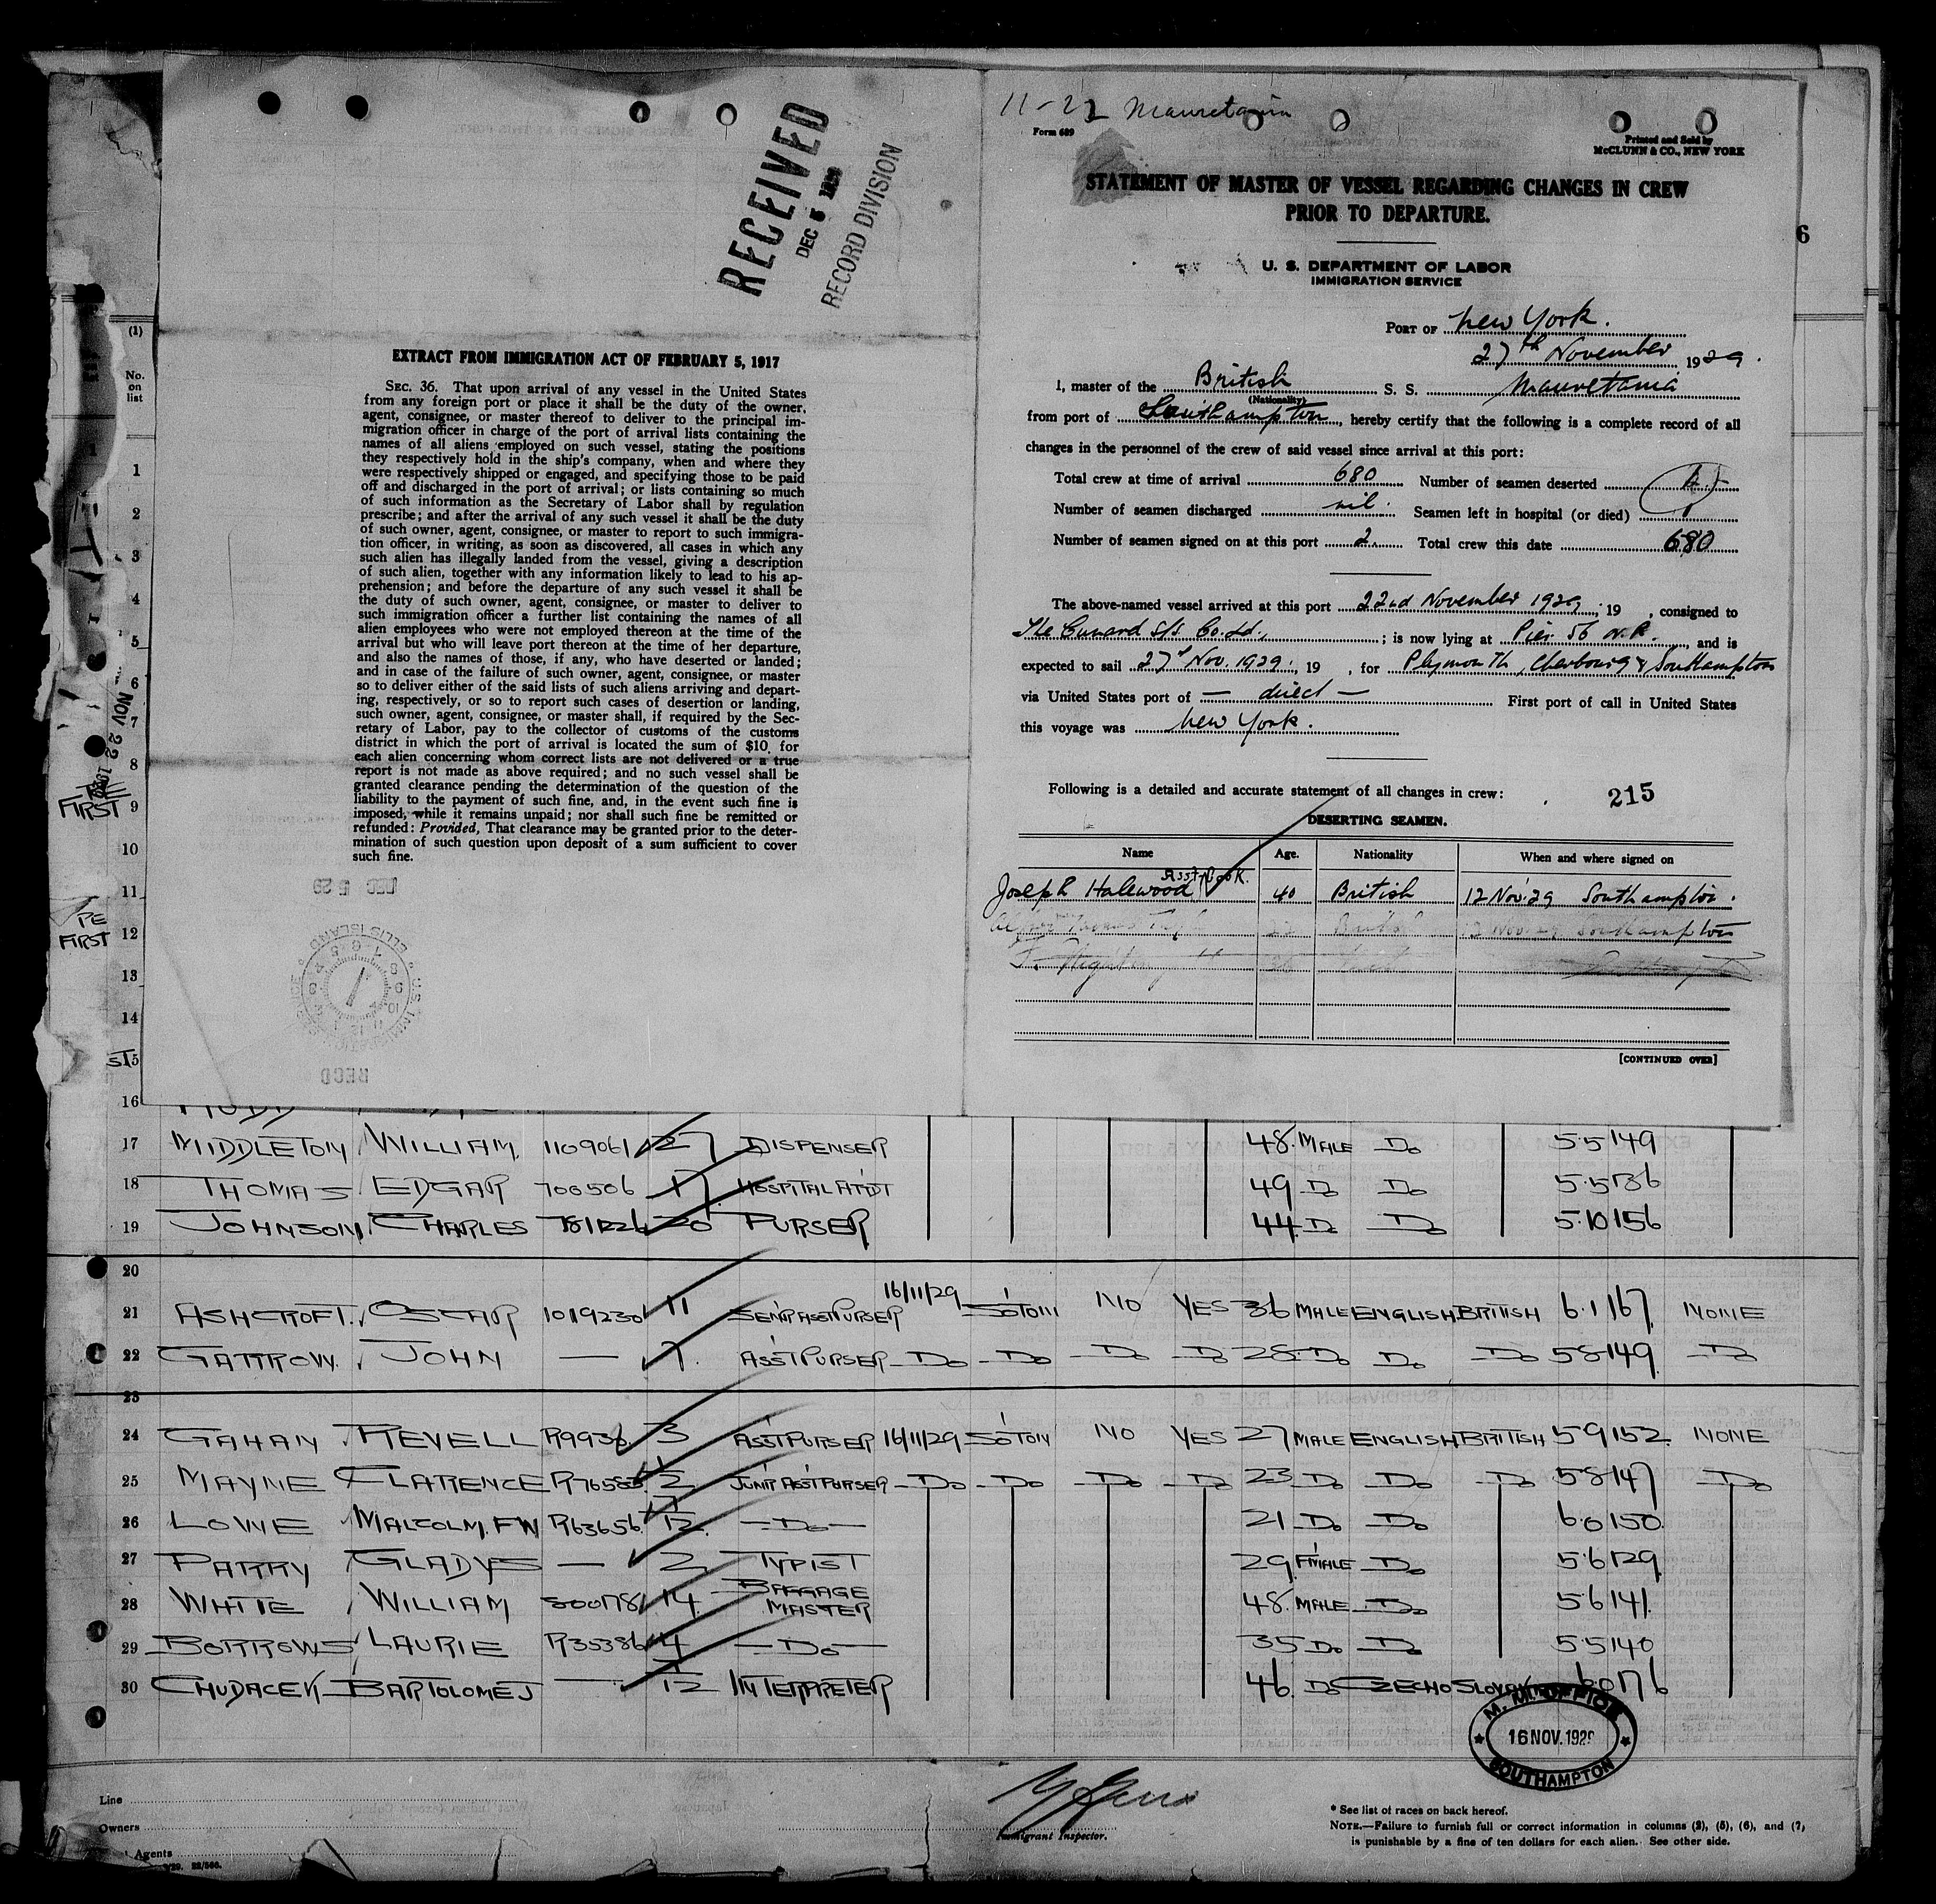 11-22 Mauretania
Form 689
Printed and Sold by
McCLUNN & CO., NEW YORK
STATEMENT OF MASTER OF VESSEL REGARDING CHANGES IN CREW
PRIOR TO DEPARTURE.
U. S. DEPARTMENT OF LABOR
IMMIGRATION SERVICE
PORT OF New York.
27th November 1929.
I, master of the British S. S. Mauretania
(Nationality)
from port of Southampton, hereby certify that the following is a complete record of all
changes in the personnel of the crew of said vessel since arrival at this port:
Total crew at time of arrival 680 Number of seamen deserted
Number of seamen discharged nil. Seamen left in hospital (or died)
Number of seamen signed on at this port 2. Total crew this date 680
The above-named vessel arrived at this port 22nd November 1929; 19 , consigned to
The Cunard S/S. Co. Ld., ; is now lying at Pier 56 N.R., and is
expected to sail 27th Nov. 1929., 19 , for Plymouth, Cherbourg & Southampton
via United States port of — direct — First port of call in United States
this voyage was New York.
Following is a detailed and accurate statement of all changes in crew: 215
DESERTING SEAMEN.
Name Age. Nationality When and where signed on
Asst Cook.
Joseph Halewood 40 British 12 Nov. 29 Southampton.
12 Nov. 29 Southampton
[CONTINUED OVER]
RECEIVED
DEC 5 1929
RECORD DIVISION
EXTRACT FROM IMMIGRATION ACT OF FEBRUARY 5, 1917
SEC. 36. That upon arrival of any vessel in the United States
from any foreign port or place it shall be the duty of the owner,
agent, consignee, or master thereof to deliver to the principal im-
migration officer in charge of the port of arrival lists containing the
names of all aliens employed on such vessel, stating the positions
they respectively hold in the ship's company, when and where they
were respectively shipped or engaged, and specifying those to be paid
off and discharged in the port of arrival; or lists containing so much
of such information as the Secretary of Labor shall by regulation
prescribe; and after the arrival of any such vessel it shall be the duty
of such owner, agent, consignee, or master to report to such immigra-
tion officer, in writing, as soon as discovered, all cases in which any
such alien has illegally landed from the vessel, giving a description
of such alien, together with any information likely to lead to his ap-
prehension; and before the departure of any such vessel it shall be
the duty of such owner, agent, consignee, or master to deliver to
such immigration officer a further list containing the names of all
alien employees who were not employed thereon at the time of the
arrival but who will leave port thereon at the time of her departure,
and also the names of those, if any, who have deserted or landed;
and in case of the failure of such owner, agent, consignee, or master
so to deliver either of the said lists of such aliens arriving and depart-
ing, respectively, or so to report such cases of desertion or landing,
such owner, agent, consignee, or master shall, if required by the Sec-
retary of Labor, pay to the collector of customs of the customs
district in which the port of arrival is located the sum of $10. for
each alien concerning whom correct lists are not delivered or a true
report is not made as above required; and no such vessel shall be
granted clearance pending the determination of the question of the
liability to the payment of such fine, and, in the event such fine is
imposed, while it remains unpaid; nor shall such fine be remitted or
refunded: Provided, That clearance may be granted prior to the deter-
mination of such question upon deposit of a sum sufficient to cover
such fine.
DEC 5 29
ELLIS ISLAND
RECD
6
(1)
No.
on
list
1
2
3
4
5
6
7
8
9
10
11
12
13
14
15
16
NOV 22
FIRST
FIRST
17 MIDDLETON WILLIAM. 1109061 27 DISPENSER 48. MALE Do 5.5 149
18 THOMAS EDGAR 706506 17 HOSPITAL ATTDT 49 Do Do 5.5 136
19 JOHNSON CHARLES 20 PURSER 44. Do Do 5.10 156
20
21 ASHCROFT. OSCAR 1019230 11 SENR ASST PURSER 16/11/29 SO'TON NO YES 36 MALE ENGLISH BRITISH 6.1 167 NONE
22 GATTROW. JOHN — 7. ASST PURSER Do Do Do Do 28. Do Do Do 5 8 149 Do
23
24 GAHAN REVELL R9936 3 ASST PURSER 16/11/29 SO'TON NO YES 27 MALE ENGLISH BRITISH 5 9 152 NONE
25 MAYNE CLARENCE R76583 JUNR ASST PURSER Do Do Do Do 23 Do Do Do 5.8 147 Do
26 LOWE MALCOLM. F W R63656 Do 21 Do Do 6.0 150
27 PARRY GLADYS — 2 TYPIST 29 F'MALE Do 5.6 129
28 WHITE WILLIAM 800178 14. BAGGAGE MASTER 48. MALE Do 5.6 141
29 BORROWS LAURIE R35386 4 Do 35 Do Do 5.5 140
30 CHUDACEK BARTOLOMEJ — INTERPRETER 46. Do CZECHO SLOVAK 6.0 176
M. M. OFFICE
16 NOV. 1929
SOUTHAMPTON
Line
Owners
Agents
Immigrant Inspector.
* See list of races on back hereof.
NOTE.—Failure to furnish full or correct information in columns (2), (5), (6), and (7),
is punishable by a fine of ten dollars for each alien. See other side.